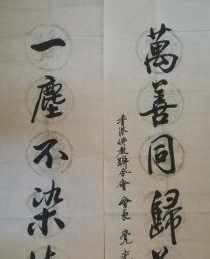 萬善同歸
香港佛教聯合會 會長 覺
一塵不染